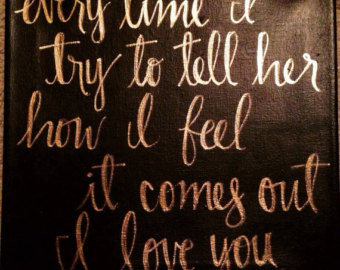 every time i
try to tell her
how i feel
it comes out
I love you